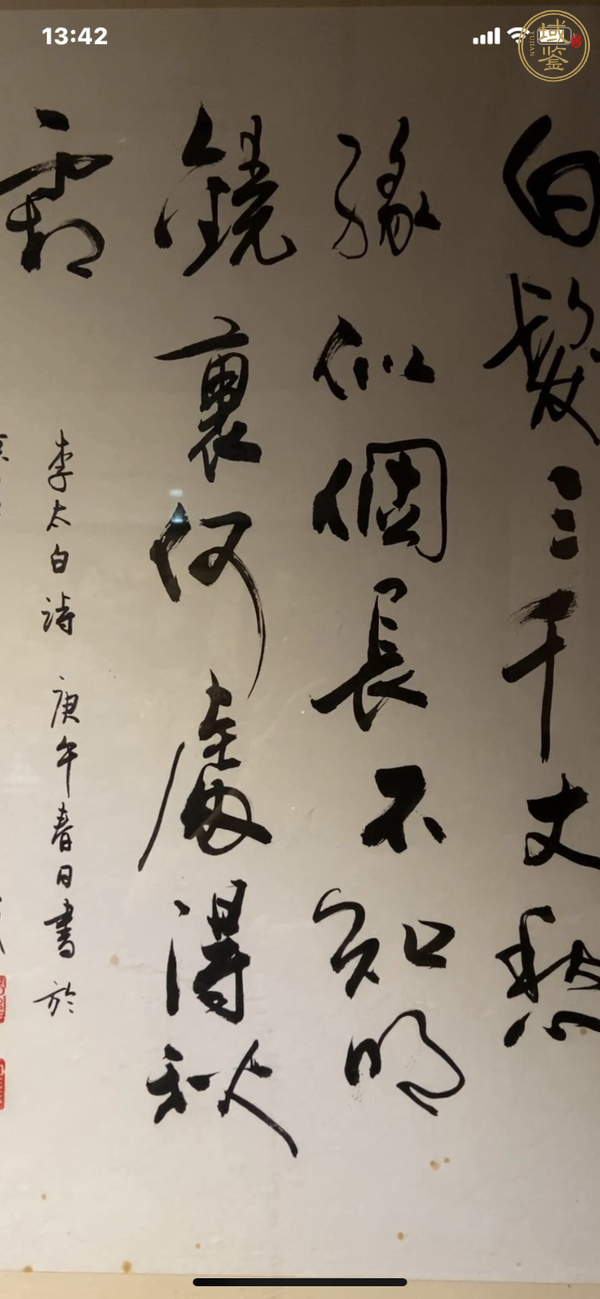 13:42
域鉴
YUJIAN
白髮三千丈愁
緣似個長不知明
鏡裏何處得秋
霜
李太白詩 庚午春日書於